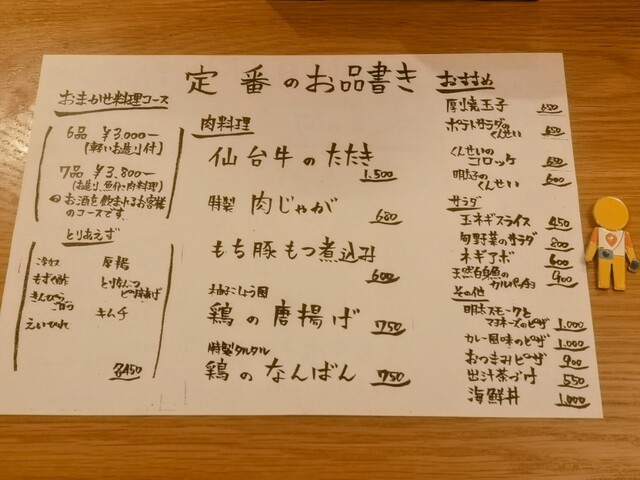 定番のお品書き
おまかせ料理コース
6品 ¥3,000ー
(軽いお造り付)
7品 ¥3,800ー
(お造り、魚介・肉料理)
お酒を飲まれるお客様
のコースです。
とりあえず
冷奴
もずく酢
きんぴら
えいひれ
厚揚
とりなんこつ
キムチ
各450
肉料理
仙台牛のたたき
1.500
特製 肉じゃが 680
もち豚もつ煮込み
600
鶏の唐揚げ 750
特製タルタル
鶏のなんばん 750
おすすめ
厚焼玉子 650
ポテトサラダの
くんせい 650
くんせいの
コロッケ 550
明太子の
くんせい 600
サラダ
玉ネギスライス 450
旬野菜のサラダ 800
ネギアボ 600
天然白身魚の
カルパッチョ 900
その他
明太スモークと
マヨネーズのピザ 1.000
カレー風味のピザ 1.000
おつまみピザ 900
出汁茶づけ 550
海鮮丼 1.000